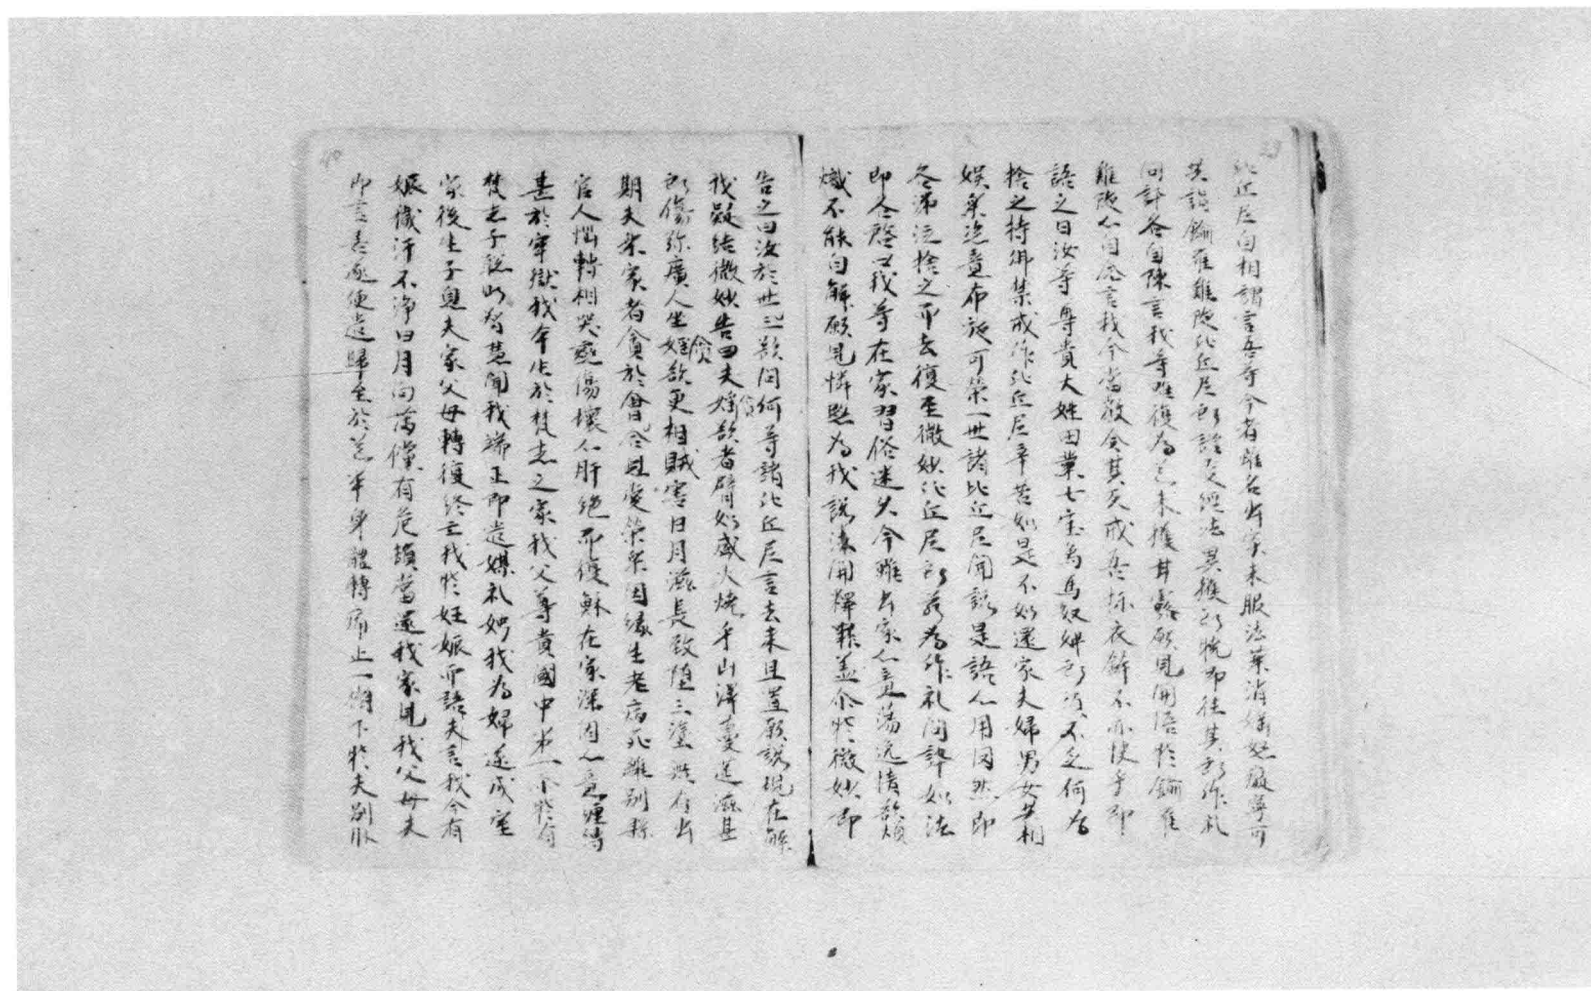 比丘尼自相謂言吾等今者雖名出家未服法藥消婬怒癡寧可
共詣鍮羅難陁比丘尼所諮受經法冀獲所尅即往其所作礼
問訊各自陳言我等雖復為道未獲甘露願見開悟於鍮羅
難陁心自念言我今當教令其反戒吾採衣鉢不亦快乎即
語之曰汝等尊貴大姓田業七宝為馬奴婢所須不乏何為
捨之持仏禁戒作比丘尼辛苦如是不如還家夫婦男女共相
娯樂恣意布施可榮一世諸比丘尼聞説是語心用罔然即
各涕泣捨之而去復至微妙比丘尼所前為作礼問訊如法
即各啓曰我等在家習俗迷久今雖出家心意蕩逸情欲煩
熾不能自解願見憐愍為我説法開釋罪盖尒時微妙即
告之曰汝於世三欲問何等諸比丘尼言去来且置願説現在解
我疑結微妙告曰夫婬欲者譬如盛火燒于山澤蔓莚滋甚
所傷弥廣人坐婬欲更相賊害日月滋長致堕三塗無有出
期夫樂家者貪於會合恩愛榮樂因縁生老病死離別縣
官人惱轉相哭戀傷壞心肝絶而復穌在家深固心意纏縛
甚於牢獄我本生於梵志之家我父尊貴國中第一尒時有
梵志子聡明智慧聞我端正即遣媒礼娉我為婦遂成室
家後生子息夫家父母轉復終亡我時妊娠而語夫言我今有
娠穢汙不淨日月向滿儻有危頓當還我家見我父母夫
即言善遂便遣歸至於道半身體轉痛止一樹下時夫別臥